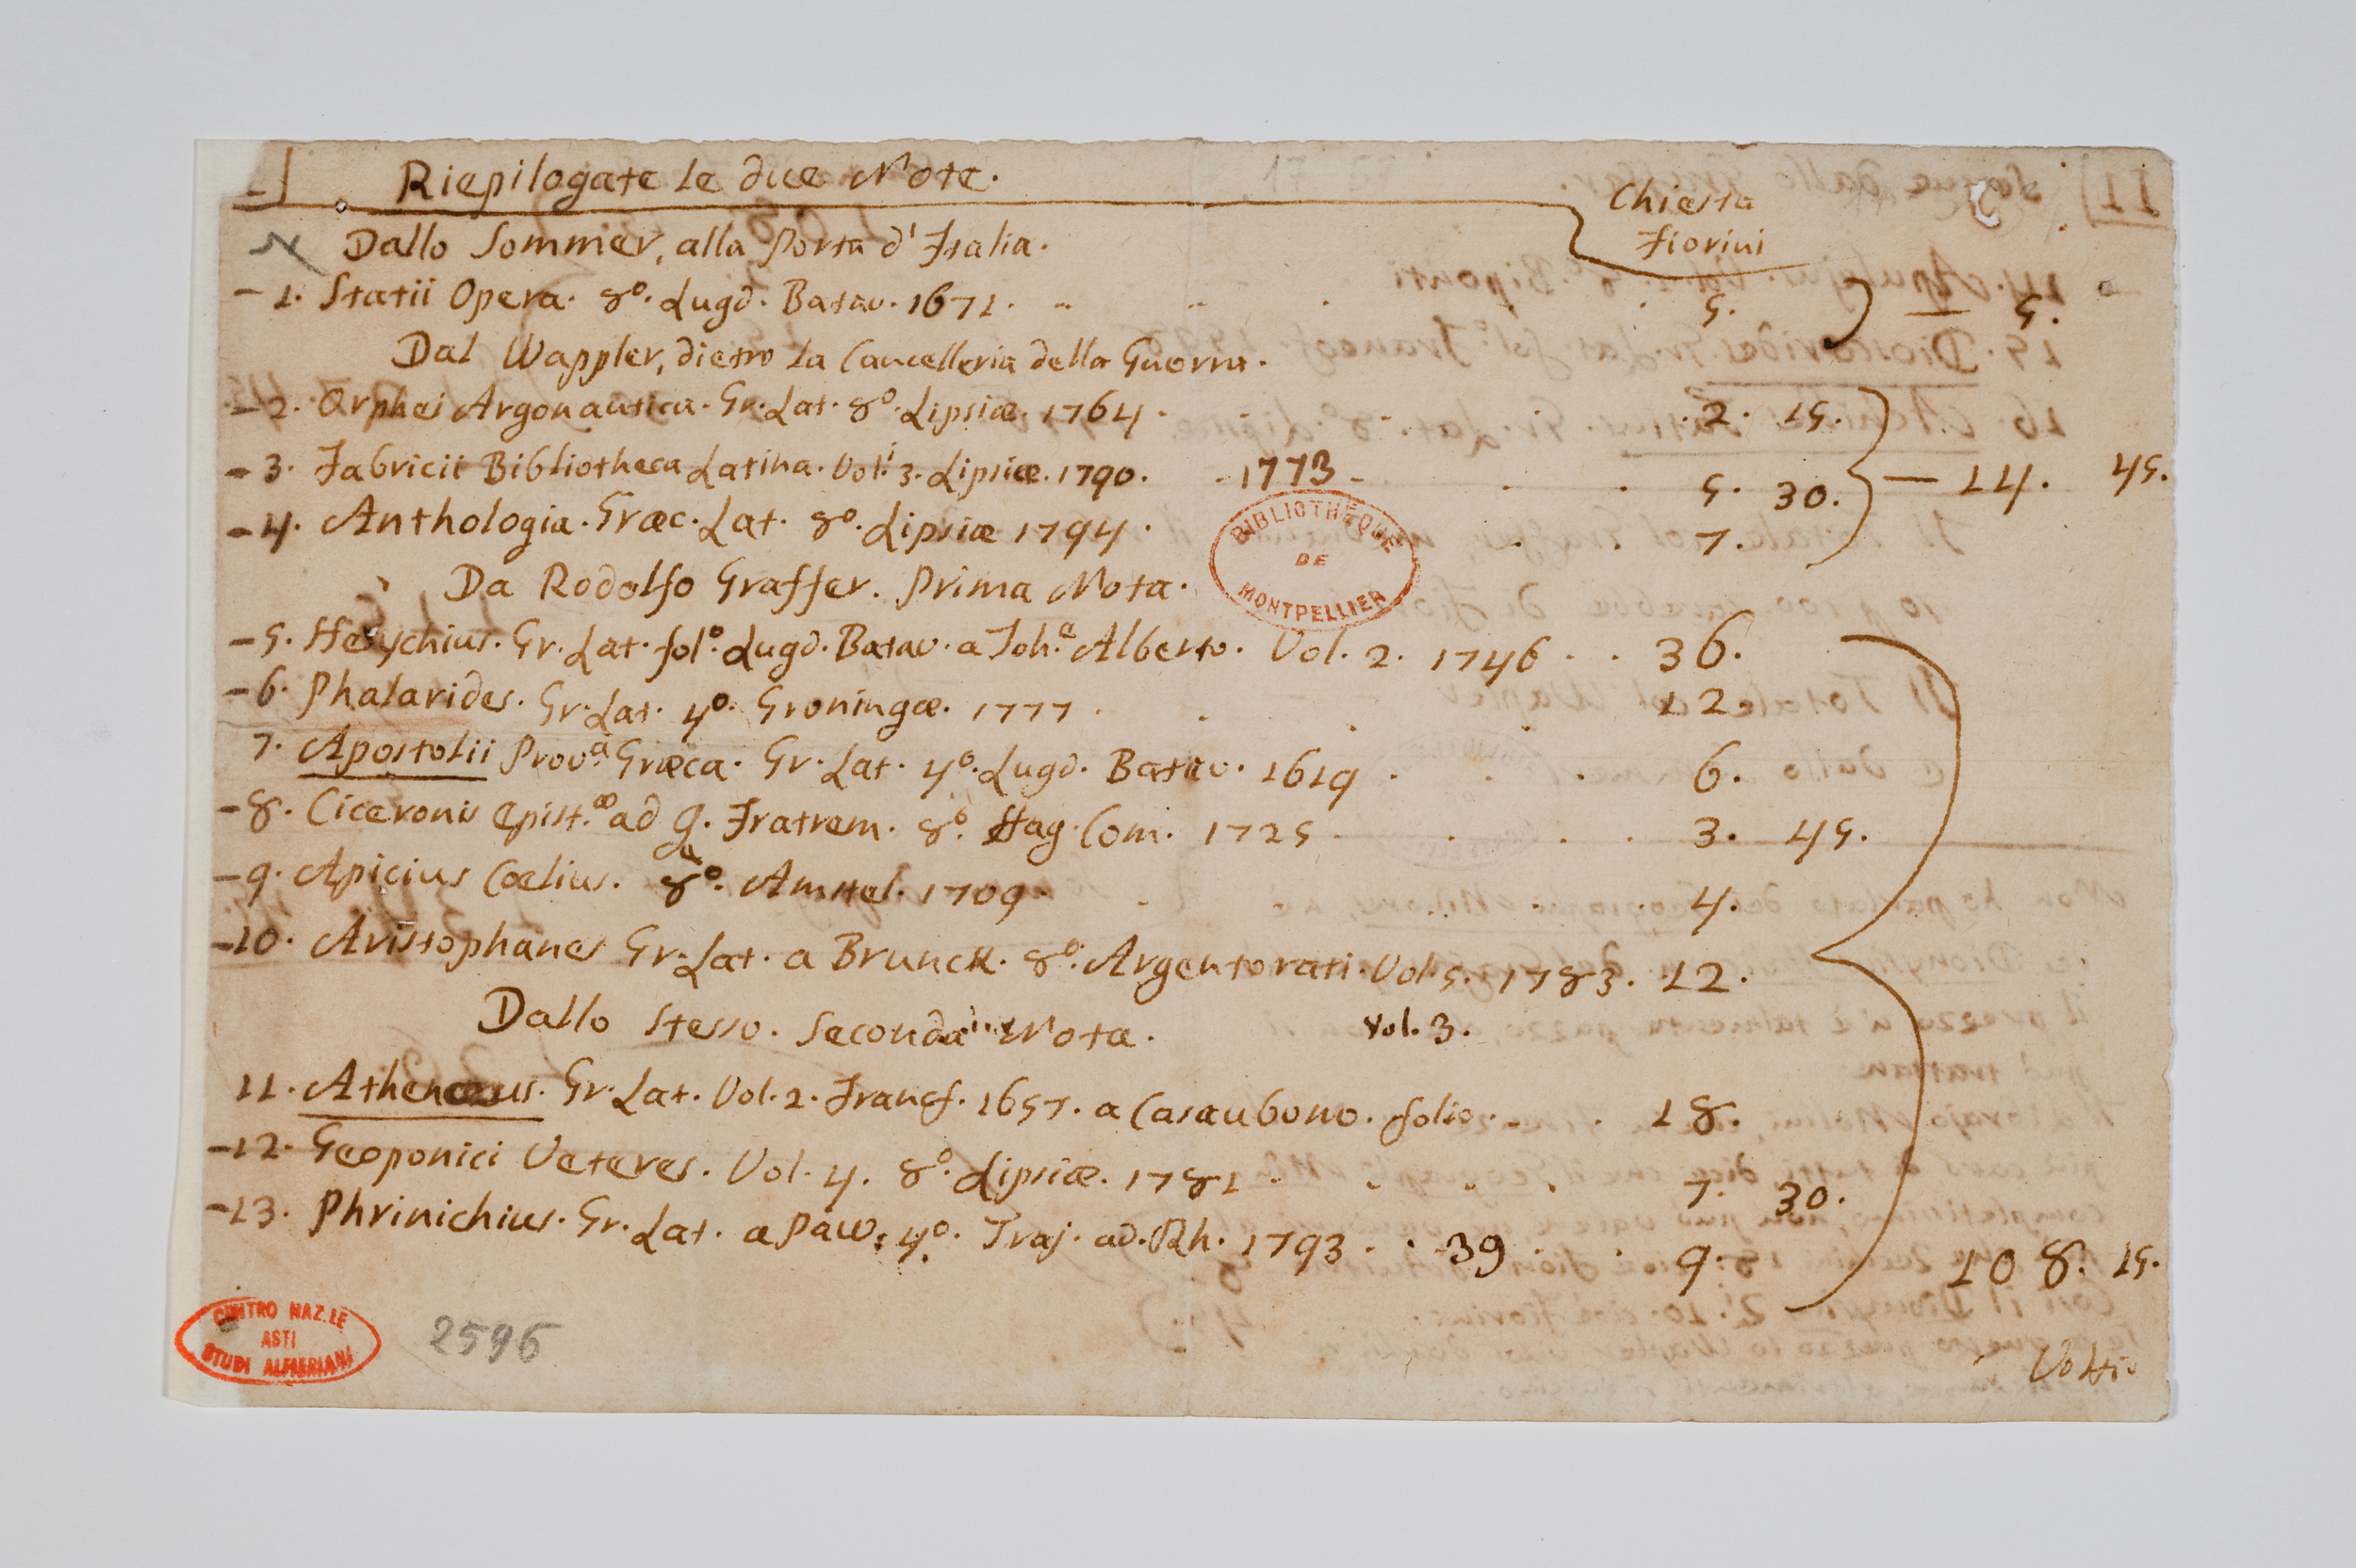 I. Riepilogate le due Note.
Chiesta
Fiorini
Dallo Sommer, alla Porta d'Italia.
-1. Statii Opera. 8º. Lugd. Batav. 1671. 5. — 5.
Dal Wappler, dietro la Cancelleria della Guerra.
-2. Orphei Argonautica. Gr. Lat. 8º. Lipsiæ. 1764. 2. 15.
-3. Fabricii Bibliotheca Latina. Voli. 3. Lipsiæ. 1790. -1773- 5. 30. — 14. 45.
-4. Anthologia. Græc. Lat. 8º. Lipsiæ 1794. 7.
Da Rodolfo Graffer. Prima Nota.
-5. Hesychius. Gr. Lat. folº. Lugd. Batav. a Joh.e Alberto. Vol. 2. 1746. 36.
-6. Phalarides. Gr. Lat. 4º. Groningæ. 1777. 12.
7. Apostolii Prov.a Græca. Gr. Lat. 4º. Lugd. Batav. 1619. 6.
-8. Ciceronis Epist.æ ad Q. Fratrem. 8º. Hag. Com. 1725. 3. 45.
-9. Apicius Cœlius. 8º. Amstel. 1709. 4.
-10. Aristophanes Gr. Lat. a Brunck. 8º. Argentorati. Vol. 5. 1783. 12.
Dallo stesso. Seconda Nota. vol. 3.
11. Athenæus. Gr. Lat. Vol. 2. Francf. 1657. a Casaubono. folio. 18.
-12. Geoponici Veteres. Vol. 4. 8º. Lipsiæ. 1781. 7. 30.
-13. Phrinichius. Gr. Lat. a Paw. 4º. Traj. ad. Rh. 1793. -39. 9. 108. 15.
Volti
BIBLIOTHÈQUE
DE
MONTPELLIER
CENTRO NAZ.LE
ASTI
STUDI ALFIERIANI
2596